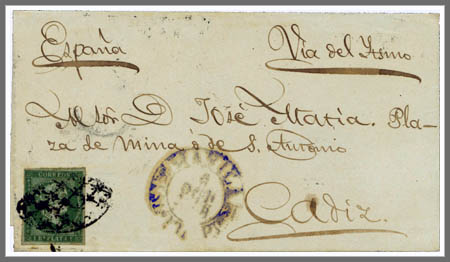 España
Vía del Ysmo
Al Sor. D José Matia. Pla-
za de Mina ó de S. Antonio
Cadiz.
CORREOS
PLATA F
MANILA